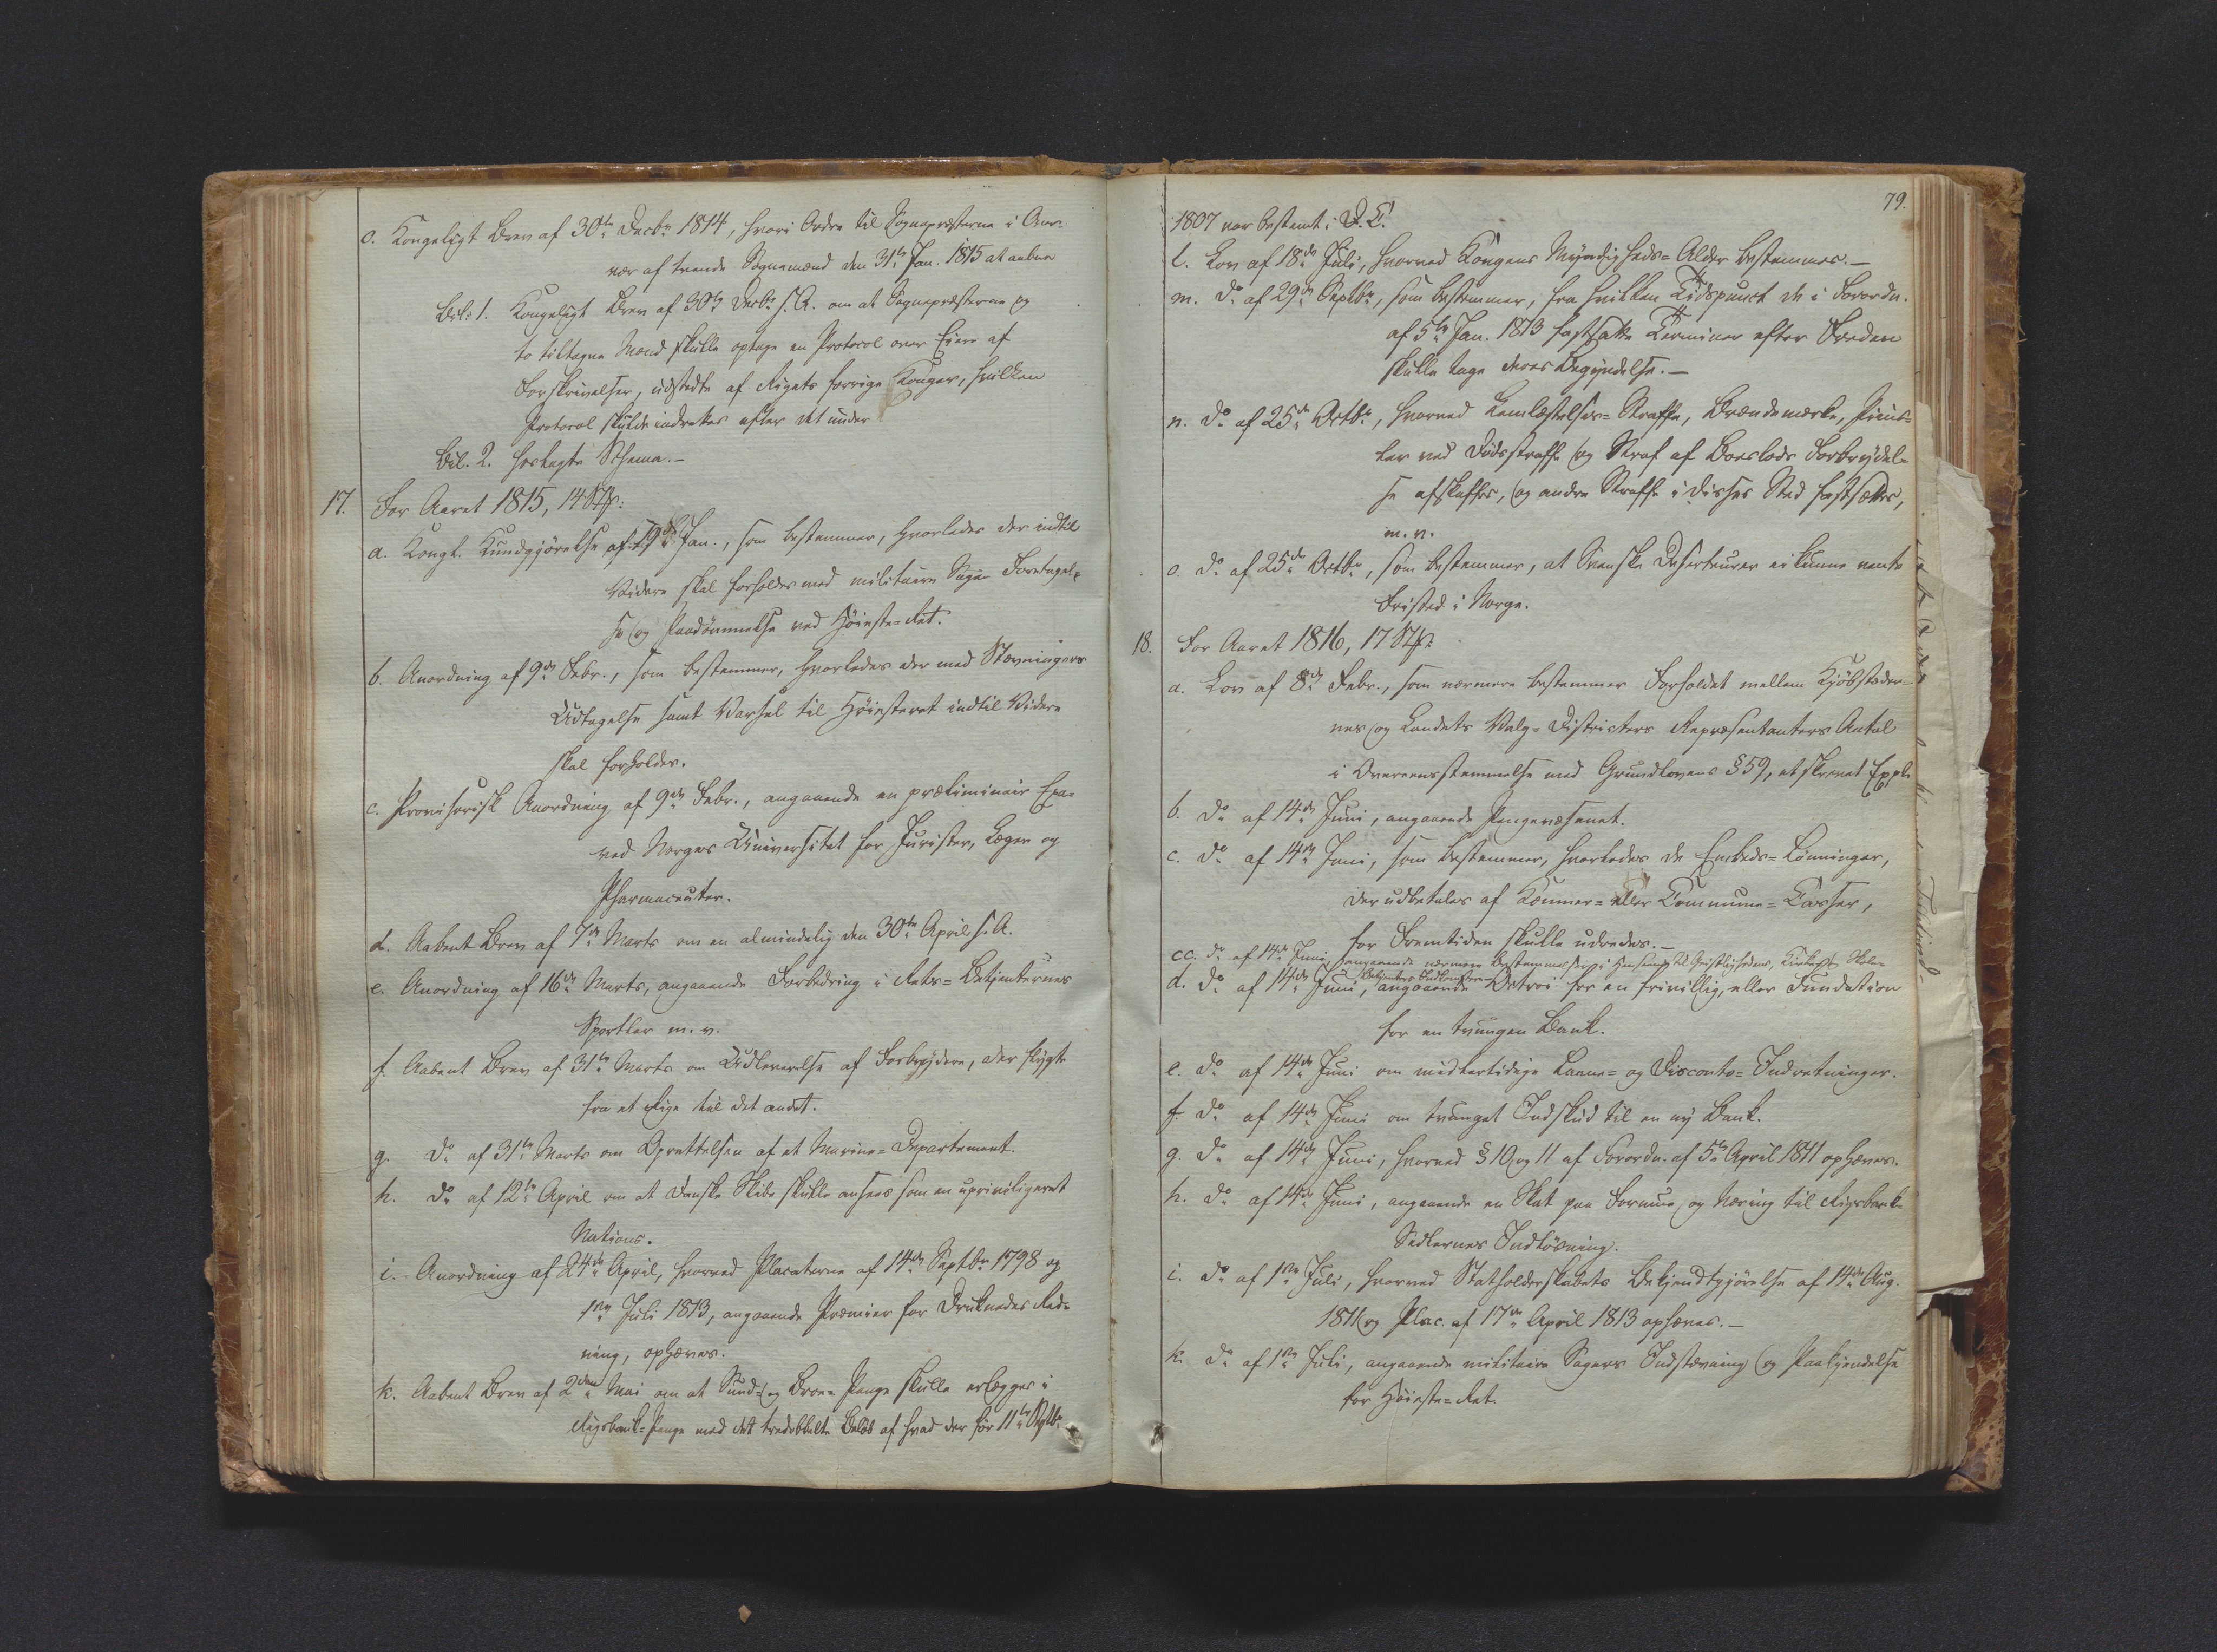 o. Kongeligt Brev af 30te Decbr 1814, hvori Ordre til Sognepræsterne i Over-
vær af trende Sognemænd den 31te Jan. 1815 at aabne
Bil: 1. Kongeligt Brev af 30te Decbr s. A. om at Sognepræsterne og
to tiltagne Mænd skulle optage en Protocol over Eiere af
Forskrivelser, udstedte af Rigets forrige Konger, hvilken
Protocol skulde indrettes efter det under
Bil. 2. hoslagte Schema.-
17. For Aaret 1815, 14 Stk:
a. Kongl. Kundgjørelse af 19de Jan., som bestemmer, hvorledes der indtil
Videre skal forholdes med militaire Sagers Foretagel-
se og Paadømmelse ved Høieste-Ret.
b. Anordning af 9de Febr., som bestemmer, hvorledes der med Stævningers
Udtagelse samt Varsel til Høiesteret indtil Videre
skal forholdes.
c. Provisorisk Anordning af 9de Febr., angaaende en præliminair Exa-
ved Norges Universitet for Jurister, Læger og
Pharmaceuter.
d. Aabent Brev af 7de Marts om en almindelig den 30te April s. A.
e. Anordning af 16de Marts, angaaende Forbedring i Rets-Betjenternes
Sportler m. v.
f. Aabent Brev af 31te Marts om Udleverelse af Forbrydere, der flygte
fra et Rige til det andet.
g. do af 31te Marts om Oprettelsen af et Marine-Departement.
h. do af 12te April om at danske Skibe skulle ansees som en upriviligeret
Nations.
i. Anordning af 24de April, hvorved Placaterne af 14de Septbr 1798 og
1ste Juli 1813, angaaende Præmier for Druknedes Red-
ning, ophæves.
k. Aabent Brev af 2den Mai om at Sund- og Broe-Penge skulle erlægges i
Rigsbank-Penge med det tredobbelte Beløb af hvad der før 11te Septbr
79.
1807 var bestemt i D. C.
l. Lov af 18de Juli, hvorved Kongens Myndigheds-Alder bestemmes.-
m. do af 29de Septbr, som bestemmer, fra hvilken Tidspunct de i Forordn.
af 5te Jan. 1813 fastsatte Terminer efter Freden
skulle tage deres Begyndelse.-
n. do af 25de Octbr, hvorved Lemlæstelses-Straffe, Brændemærke, Piins-
ler ved Dødsstraffe og Straf af Boeslods Forbrydel-
se afskaffes, og andre Straffe i disses Sted fastsættes,
m. v.
o. do af 25de Octbr, som bestemmer, at Svenske Deserteurer ei kunne vente
Fristed i Norge.
18. For Aaret 1816, 17 Stk:
a. Lov af 8de Febr., som nærmere bestemmer Forholdet mellem Kjøbstæder-
nes og Landets Valg-Districters Repræsentanters Antal
i Overeensstemmelse med Grundlovens § 59, et skrevet Expl.
b. do af 14de Juni, angaaende Pengevæsenet.
c. do af 14de Juni, som bestemmer, hvorledes de Embeds-Lønninger,
der udbetales af Kæmner- eller Commune-Casser,
for Fremtiden skulle udredes.-
cc. do af 14de Juni, angaaende nærmere Bestemmelser i Henseende til Geistlighedens, Kirke- og Skole-
Betjentes Indkomster
d. do af 14de Juni, angaaende Octroi for en frivillig, eller Fundation
for en tvungen Bank.
e. do af 14de Juni om midlertidige Laane- og Disconto-Indretninger.
f. do af 14de Juni om tvunget Indskud til en ny Bank.
g. do af 14de Juni, hvorved § 10 og 11 af Forordn. af 5te April 1811 ophæves.
h. do af 14de Juni, angaaende en Skat paa Formue og Næring til Rigsbank-
Sedlernes Indløsning.
i. do af 1ste Juli, hvorved Statholderskabets Bekjendtgjørelse af 14de Aug.
1811 og Plac. af 17de April 1813 ophæves.-
k. do af 1ste Juli, angaaende militaire Sagers Indstævning og Paakjendelse
for Høieste-Ret.